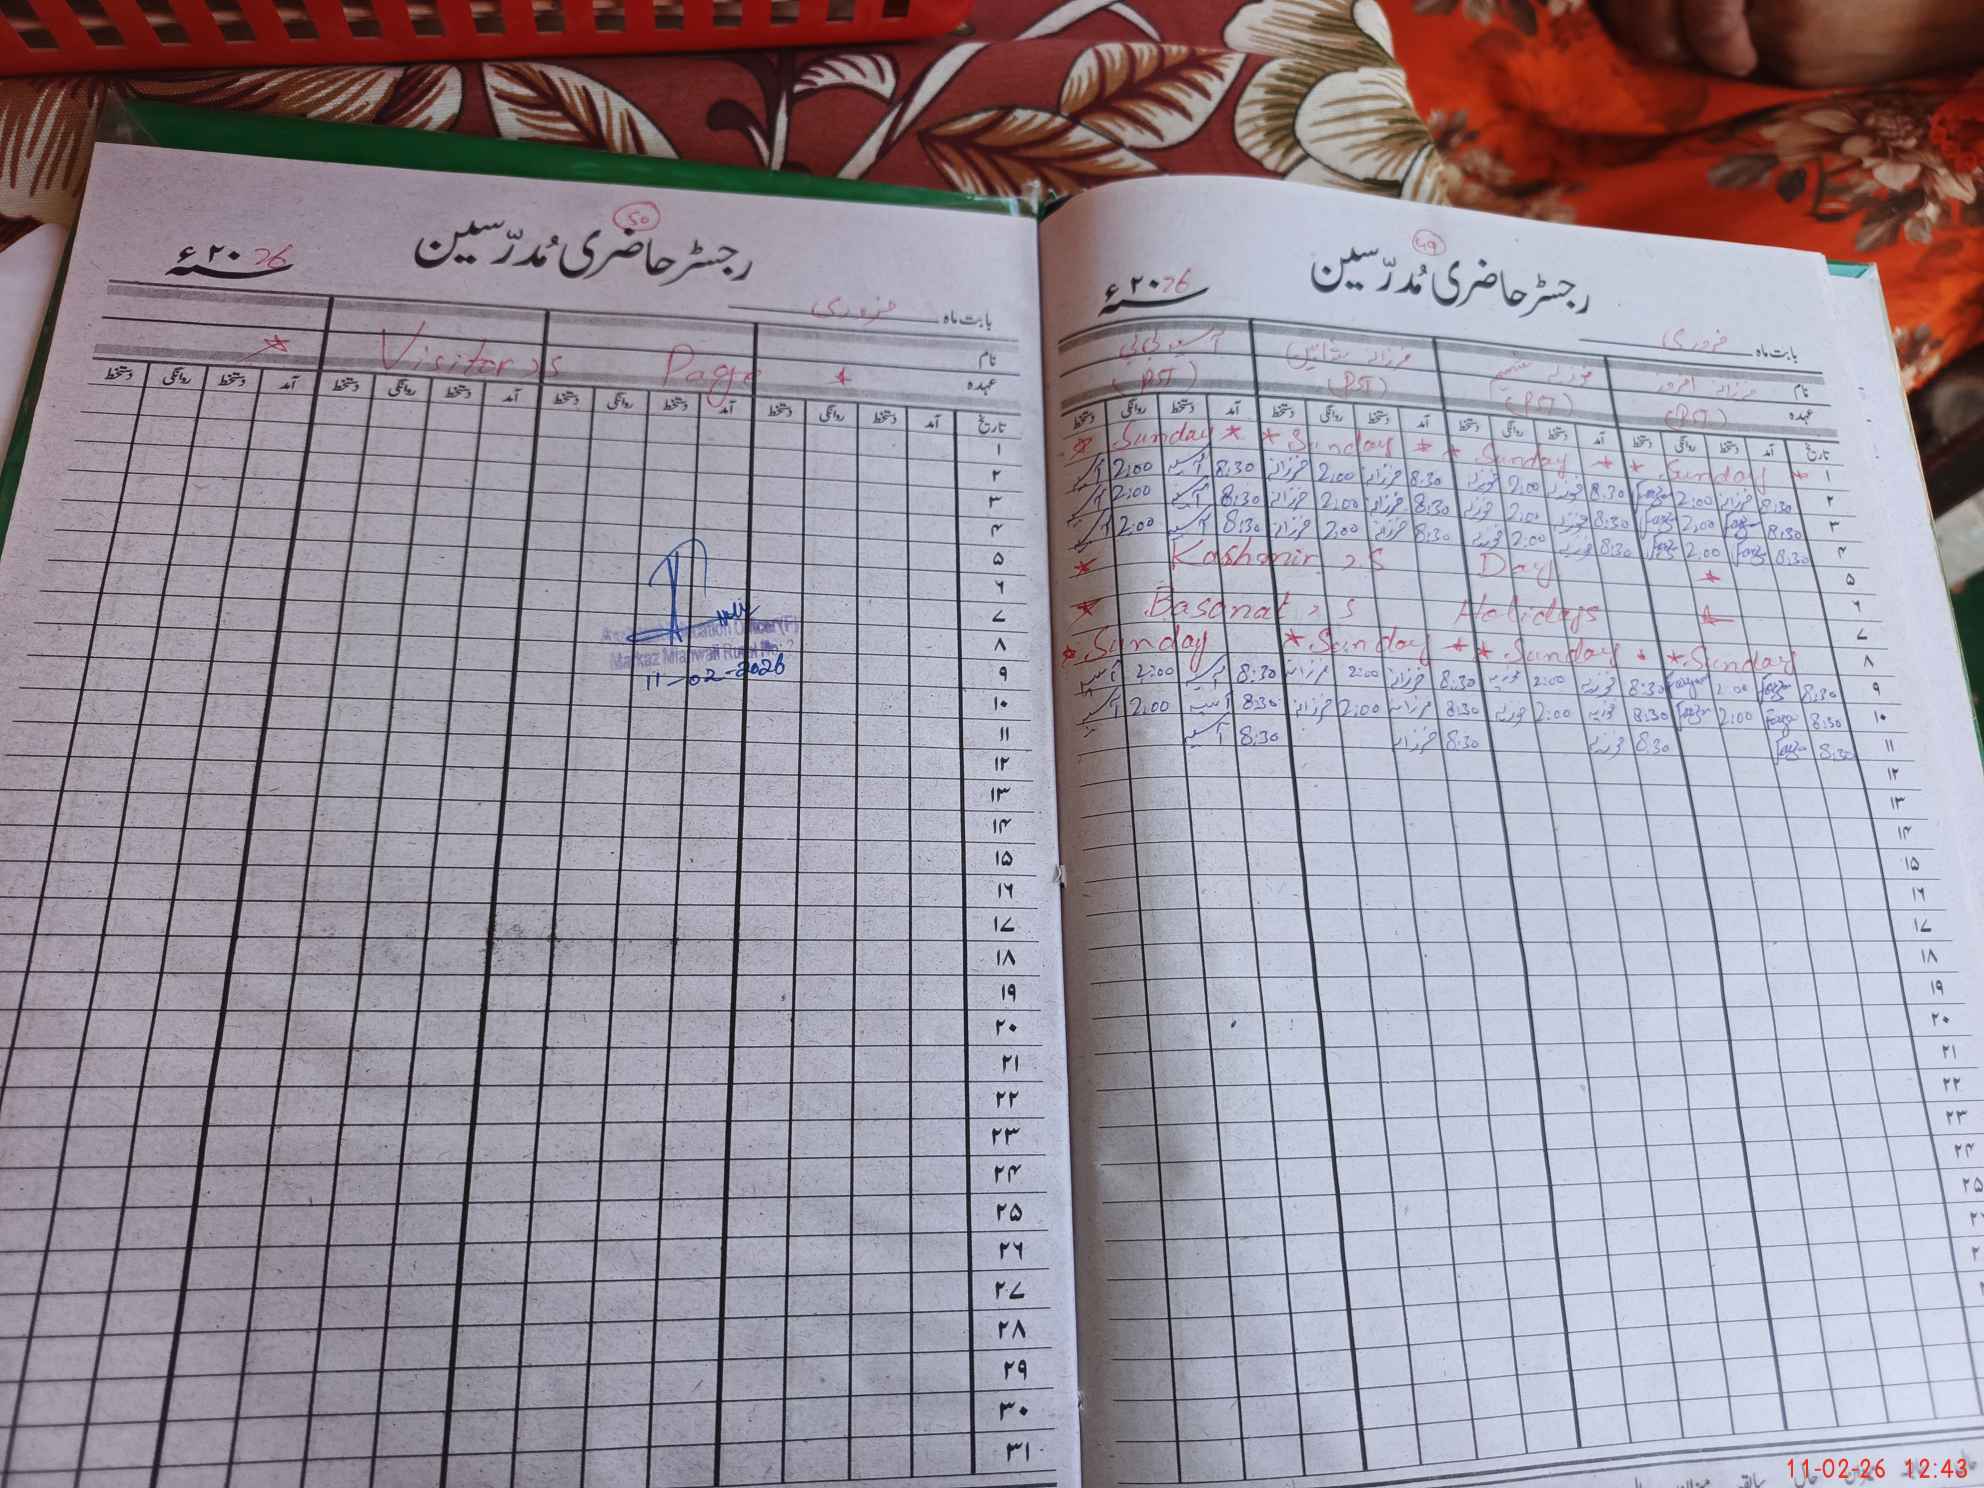 50
رجسٹر حاضری مُدرّسین
سنہ ۲۰26ء
بابت ماہ فروری
نام
عہدہ
* Visitor's Page *
تاریخ آمد دستخط روانگی دستخط آمد دستخط روانگی دستخط آمد دستخط روانگی دستخط آمد دستخط روانگی دستخط
۱
۲
۳
۴
۵
۶
۷
۸
۹
۱۰
۱۱
۱۲
۱۳
۱۴
۱۵
۱۶
۱۷
۱۸
۱۹
۲۰
۲۱
۲۲
۲۳
۲۴
۲۵
۲۶
۲۷
۲۸
۲۹
۳۰
۳۱
Assistant Education Officer (F)
Markaz Mianwali Rural No:
11-02-2026
49
رجسٹر حاضری مُدرّسین
سنہ ۲۰26ء
بابت ماہ فروری
نام فرزانہ آسیہ بی بی
عہدہ (PST) (PST) (PST) (PST)
تاریخ آمد دستخط روانگی دستخط آمد دستخط روانگی دستخط آمد دستخط روانگی دستخط آمد دستخط روانگی دستخط
۱ * Sunday * * Sunday * * Sunday * * Sunday *
۲ 8:30 فرزانہ 2:00 8:30 فوزیہ 2:00 فوزیہ 8:30 فرزانہ 2:00 فرزانہ 8:30 آسیہ 2:00 آسیہ
۳ 8:30 2:00 8:30 فوزیہ 2:00 فوزیہ 8:30 فرزانہ 2:00 فرزانہ 8:30 آسیہ 2:00 آسیہ
۴ 8:30 2:00 8:30 فوزیہ 2:00 فوزیہ 8:30 فرزانہ 2:00 فرزانہ 8:30 آسیہ 2:00 آسیہ
۵ * Kashmir's Day *
۶ * Basanat's Holidays *
۷
۸ * Sunday * Sunday * * Sunday * * Sunday
۹ 8:30 2:00 8:30 فوزیہ 2:00 فوزیہ 8:30 فرزانہ 2:00 فرزانہ 8:30 آسیہ 2:00 آسیہ
۱۰ 8:30 2:00 8:30 فوزیہ 2:00 فوزیہ 8:30 فرزانہ 2:00 فرزانہ 8:30 آسیہ 2:00 آسیہ
۱۱ 8:30 8:30 فوزیہ 8:30 فرزانہ 8:30 آسیہ
۱۲
۱۳
۱۴
۱۵
۱۶
۱۷
۱۸
۱۹
۲۰
۲۱
۲۲
۲۳
۲۴
۲۵
11-02-26 12:43